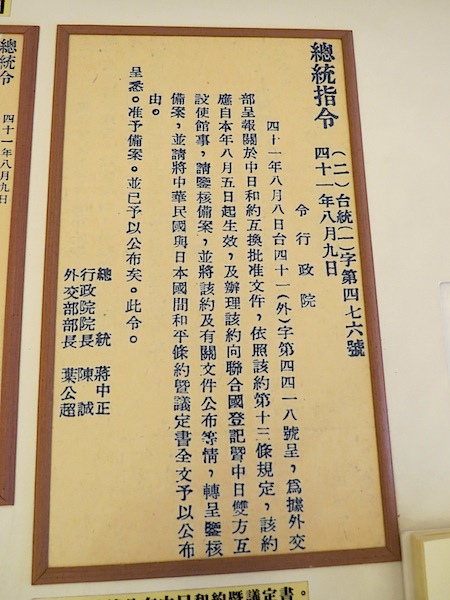 總統指令
(二)台統(一)字第四七六號
四十一年八月九日
令行政院
四十一年八月八日台四十一(外)字第四四一八號呈,爲據外交
部呈報關於中日和約互換批准文件,依照該約第十三條規定,該約
應自本年八月五日起生效,及辦理該約向聯合國登記暨中日雙方互
設使館事,請鑒核備案,並將該約及有關文件公布等情,轉呈鑒核
備案,並請將中華民國與日本國間和平條約暨議定書全文予以公布
由。
呈悉。准予備案。並已予以公布矣。此令。
總統 蔣中正
行政院院長 陳誠
外交部部長 葉公超
總統令
四十一年八月九日
中日和約暨議定書。